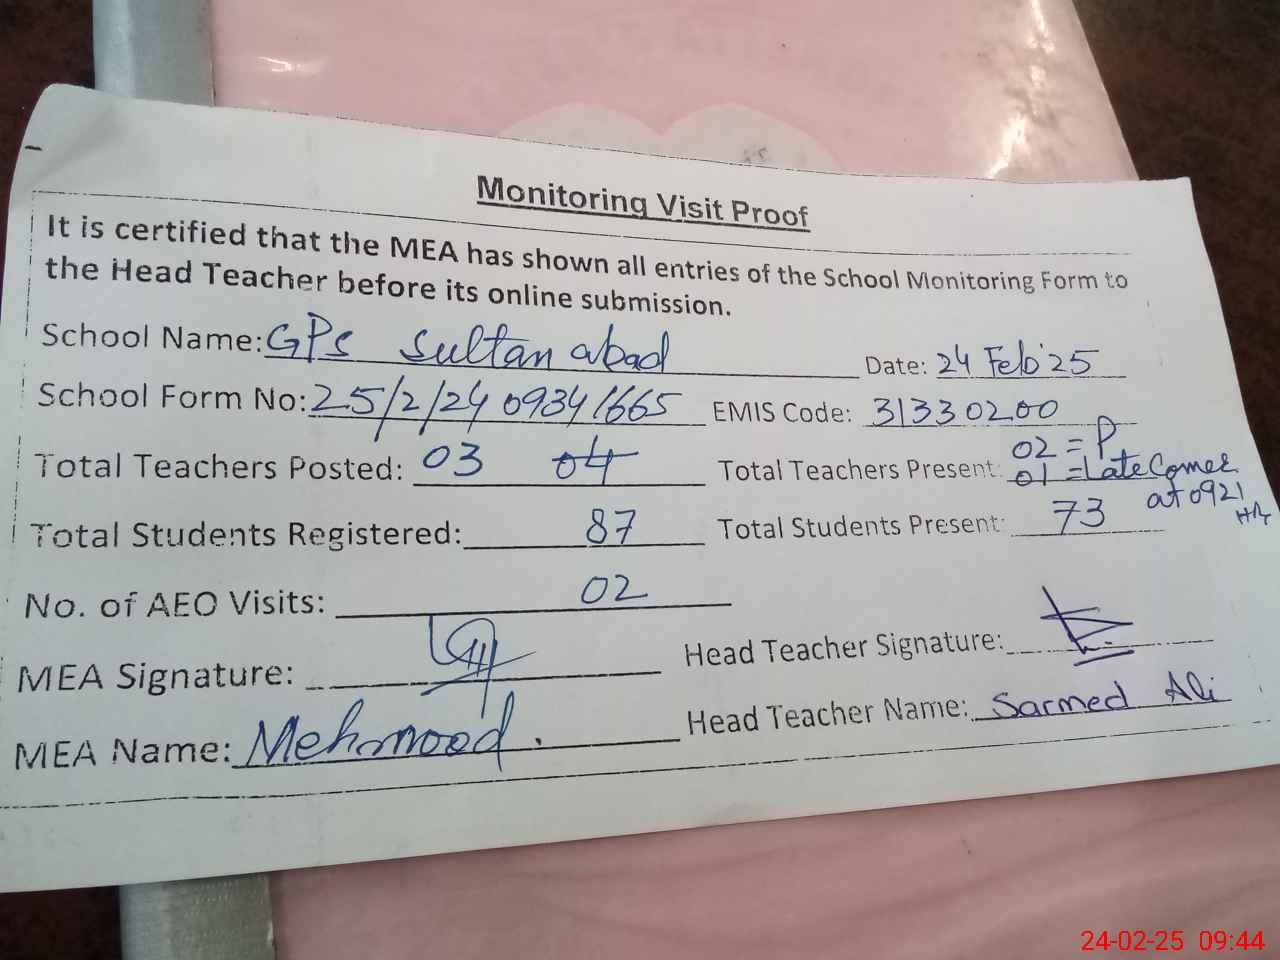 Monitoring Visit Proof
It is certified that the MEA has shown all entries of the School Monitoring Form to
the Head Teacher before its online submission.
School Name: GPS Sultan abad Date: 24 Feb'25
School Form No: 25/2/24 09341665 EMIS Code: 31330200
Total Teachers Posted: 03 04 Total Teachers Present: 02 = P
01 = Late Comer
at 0921
Hr
Total Students Registered: 87 Total Students Present: 73
No. of AEO Visits: 02
MEA Signature: Head Teacher Signature:
MEA Name: Mehmood. Head Teacher Name: Sarmed Ali
24-02-25 09:44